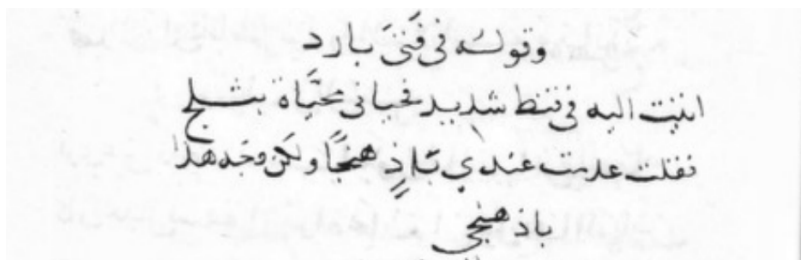 وقوله فى فتى بارد
اتيت اليه فى قيظ شديد فحيانى محيَّاة بثلج
فقلت عدمت عندي باذٍ هنجًا ولكن وجه هذا
باذ هنجى